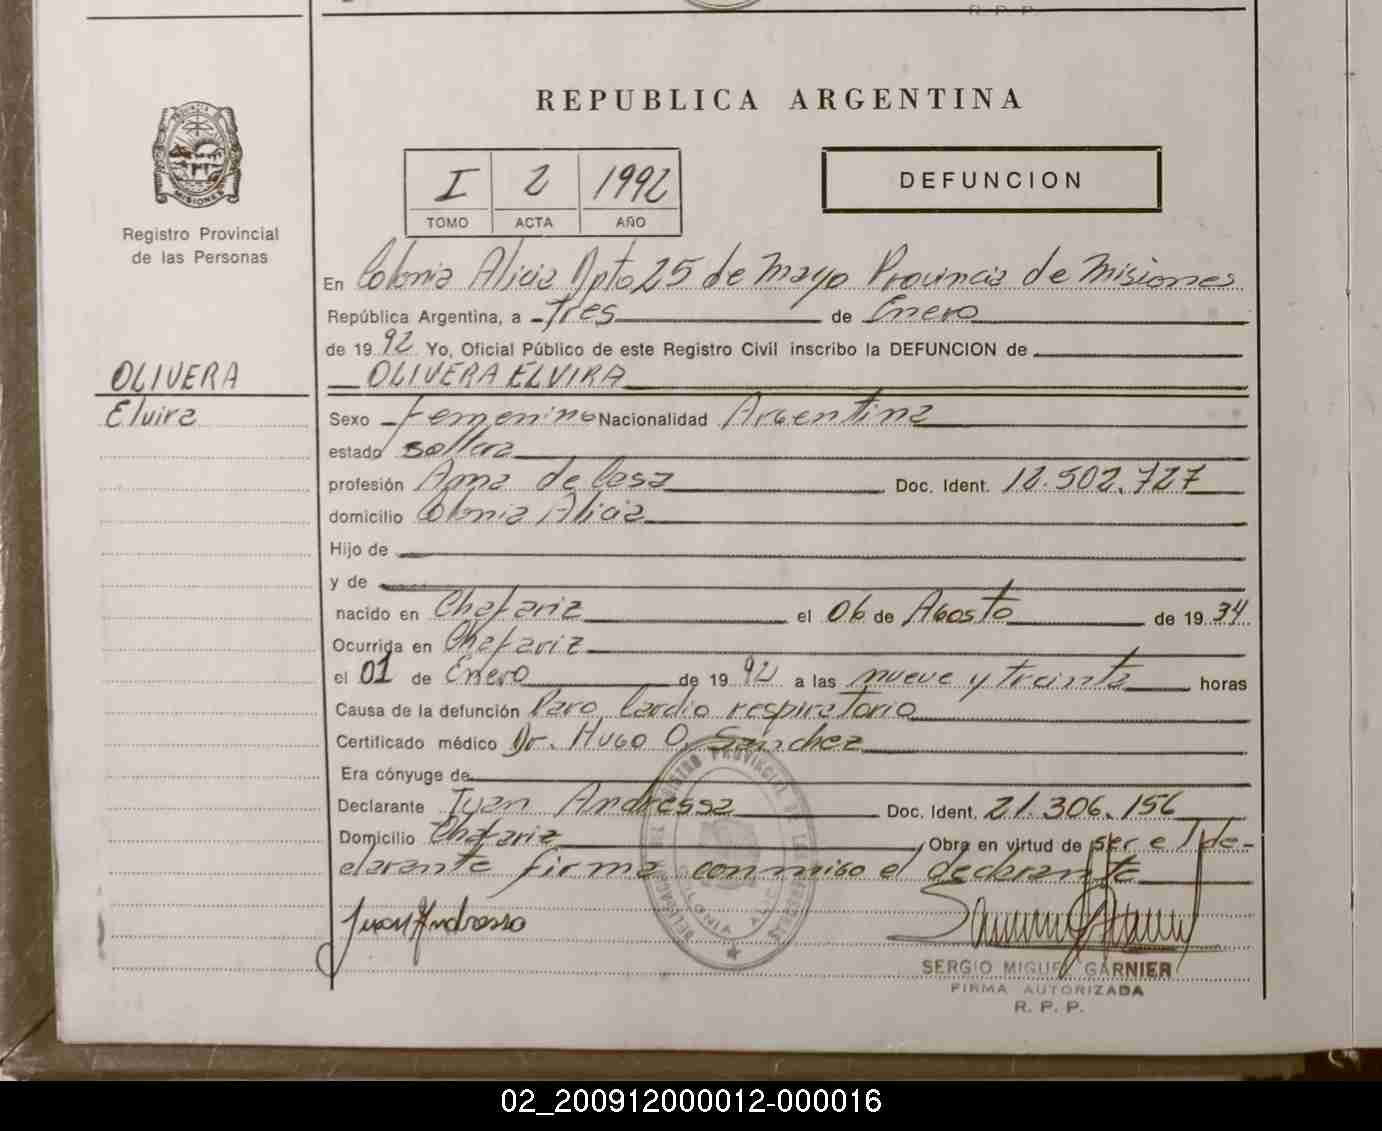 REPUBLICA ARGENTINA
I 2 1992
TOMO ACTA AÑO
DEFUNCION
PROVINCIA
MISIONES
Registro Provincial
de las Personas
En Colonia Alicia Dpto 25 de Mayo Provincia de Misiones
República Argentina, a Tres de Enero
de 19 92 Yo, Oficial Público de este Registro Civil inscribo la DEFUNCION de
OLIVERA
OLIVERA ELVIRA
Elvira
Sexo Femenino Nacionalidad Argentina
estado soltera
profesión Ama de Casa Doc. Ident. 12.502.727
domicilio Colonia Alicia
Hijo de
y de
nacido en Chafariz el 06 de Agosto de 19 34
Ocurrida en Chafariz
el 01 de Enero de 19 92 a las nueve y treinta horas
Causa de la defunción Paro Cardio respiratorio
Certificado médico Dr. Hugo O. Sanchez
Era cónyuge de
Declarante Juan Andressa Doc. Ident. 21.306.156
Domicilio Chafariz Obra en virtud de ser el de-
clarante firma conmigo el declarante
Juan Andressa
SERGIO MIGUEL GARNIER
FIRMA AUTORIZADA
R. P. P.
02_200912000012-000016